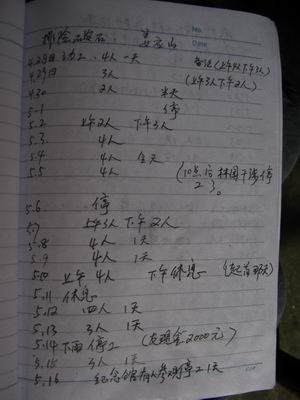 排险石发石 姜家山
No.
Date
4.28日动工. 4人一天 备注(上午4人下午3人)
4.29日 3人 (上午3人下午2人)
4.30 2人 半天
5.1 停
5.2 上午2人 下午3人
5.3 4人
5.4 4人 全天
5.5 4人 (10点后林国干涉停工)。
5.6. 停
5.7 上午3人 下午2人
5.8 4人 1天
5.9 4人 1天
5.10 上午 4人 下午休息
5.11 休息
5.12 四人 1天
5.13 3人 1天
5.14下雨停工 (支现金2000元)
5.15 3人 1天
5.16 纪念馆有人参观停工1天